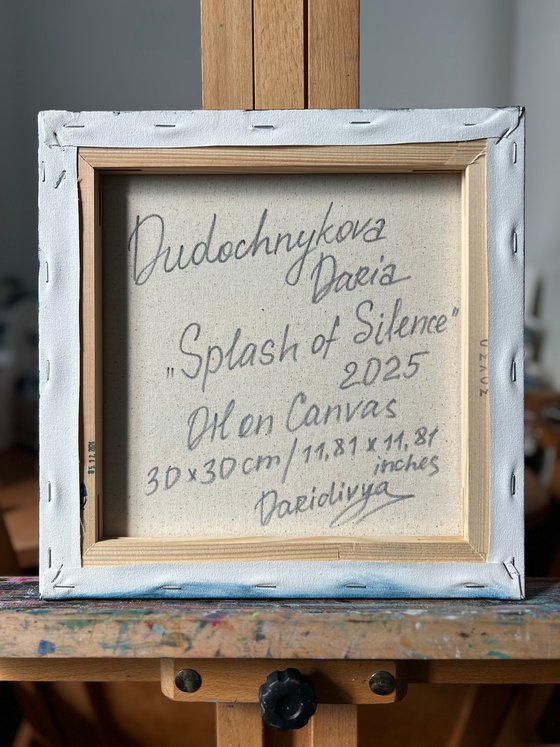 Dudochnykova
Daria
"Splash of Silence"
2025
Oil on Canvas
30x30cm/11,81 x 11,81
inches
Daridivya
30X30